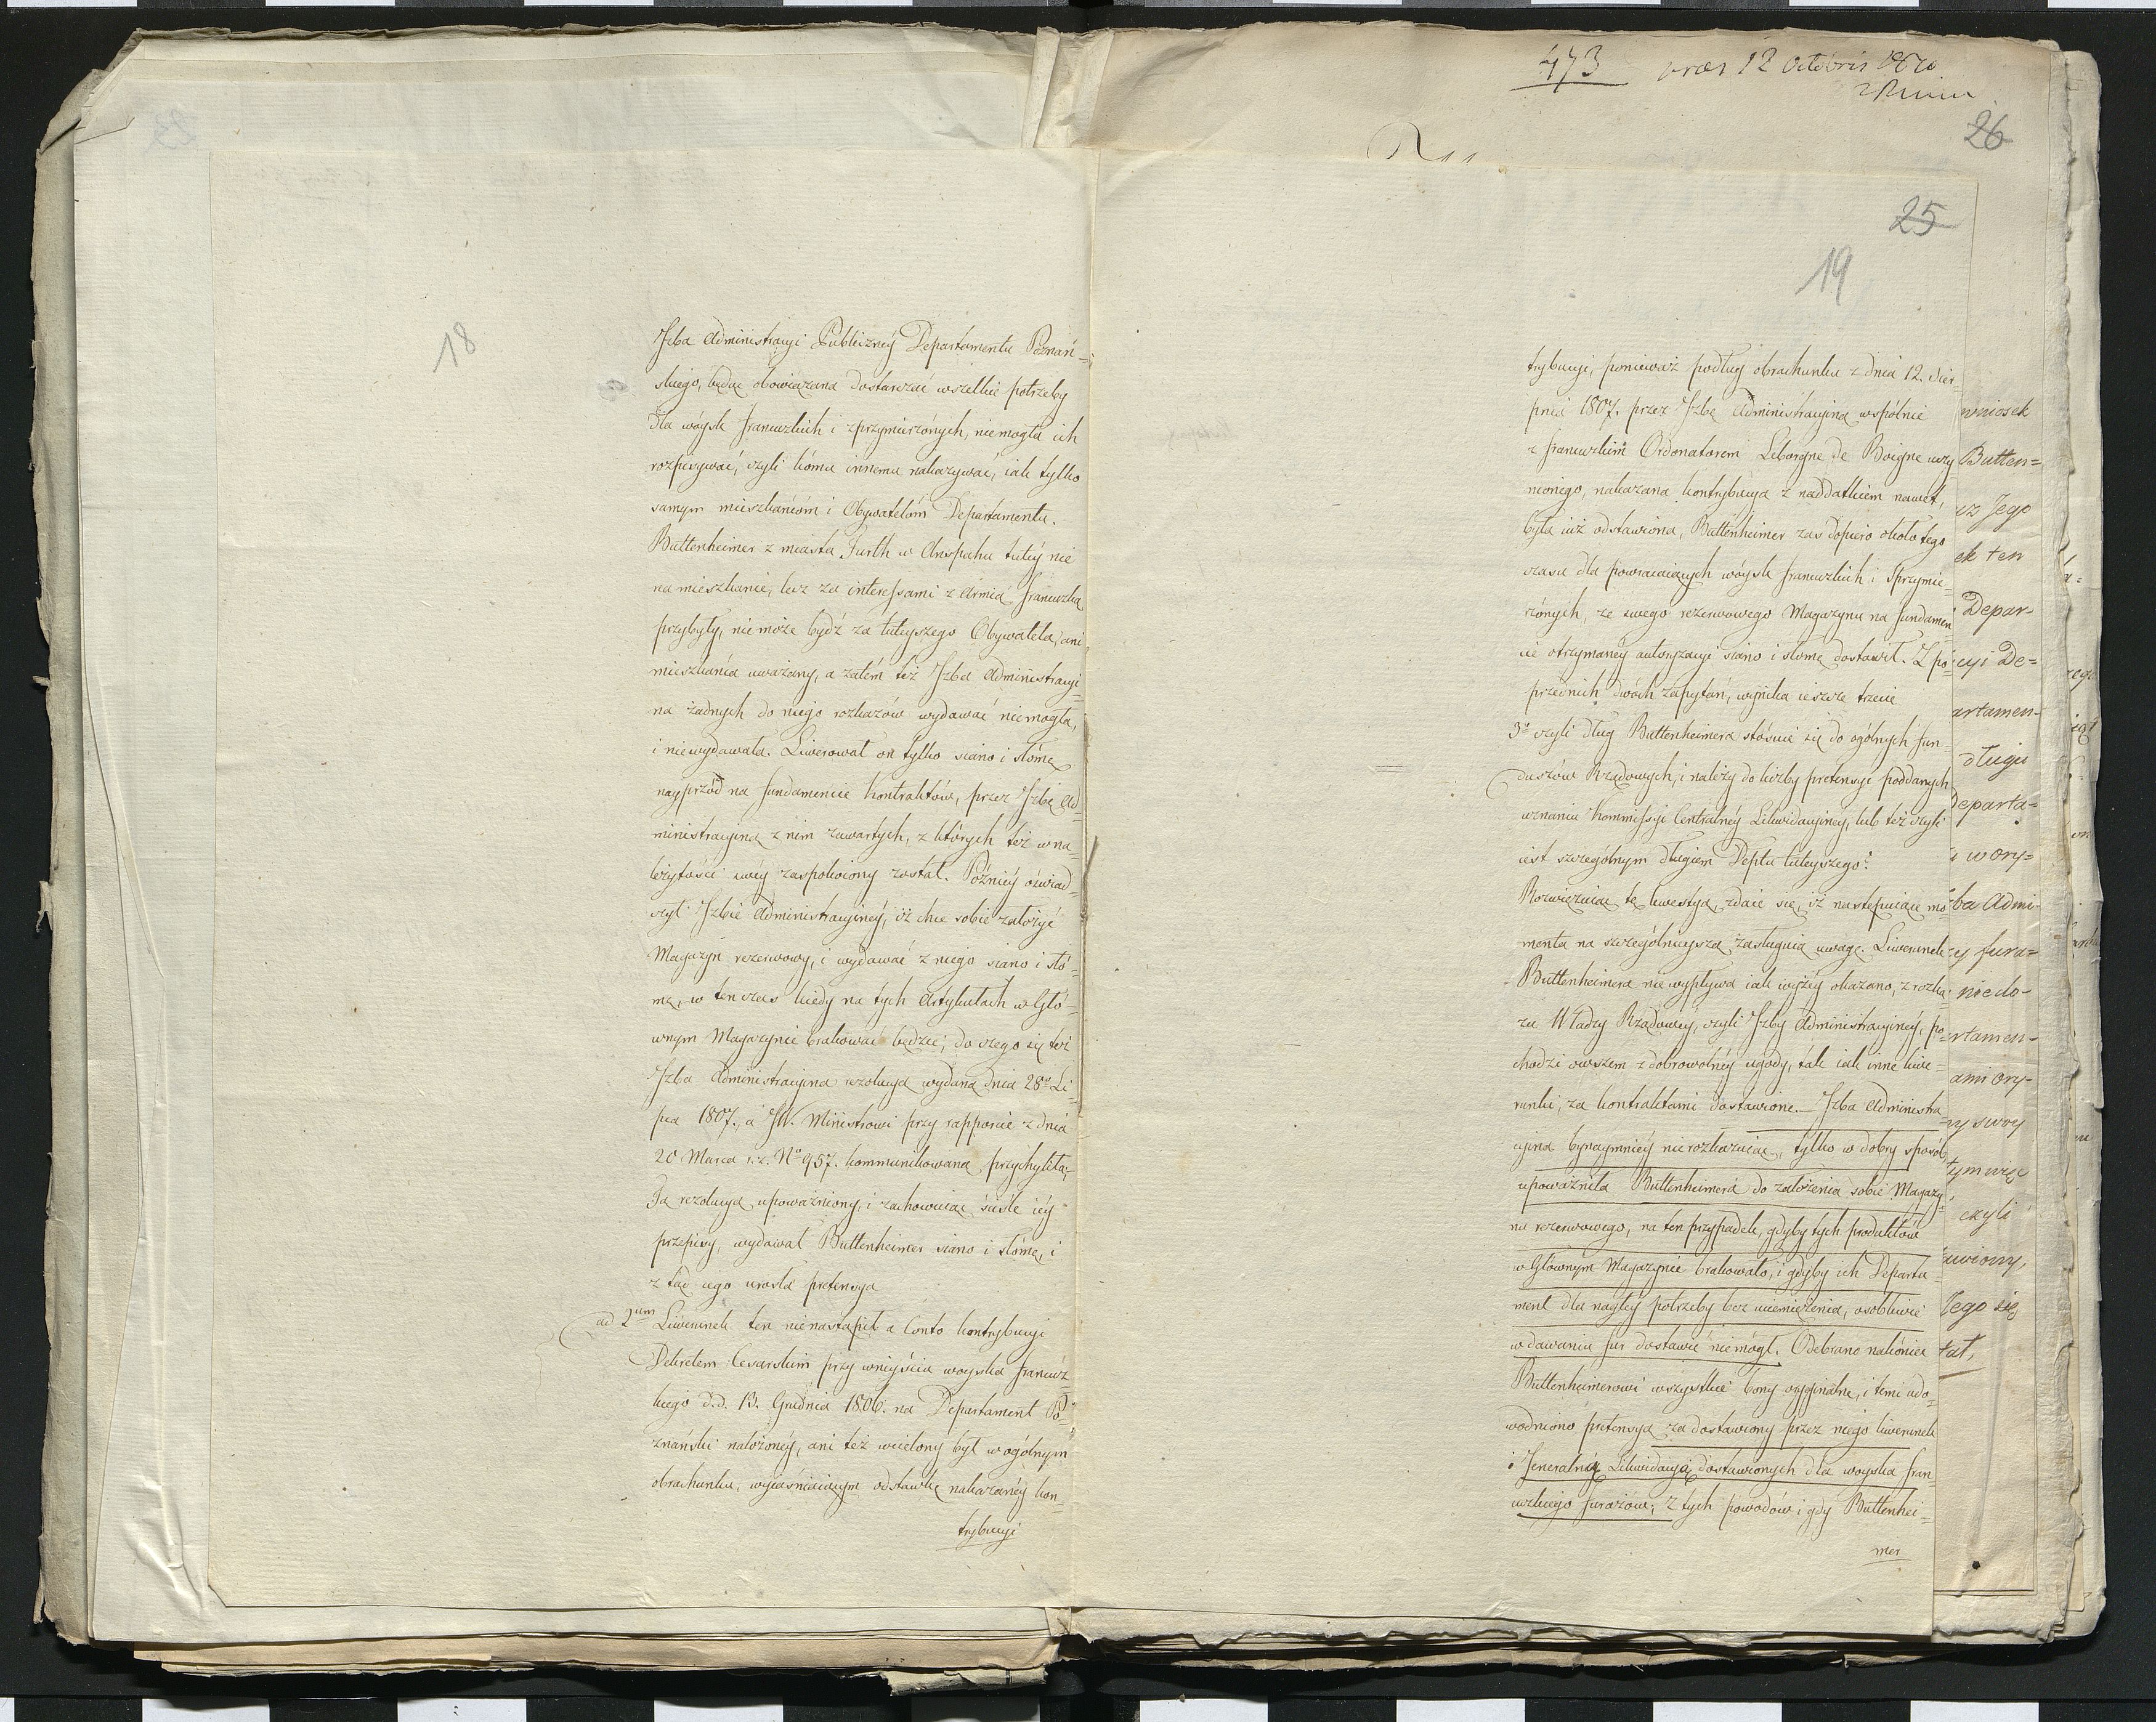 18
Jzba Administracyi Publiczney Departamentu Poznań=
skiego, będąc obowiązana dostarczać wszelkie potrzeby
dla wóysk francuzkich i sprzymierzonych, niemogła ich
rozpisywać, czyli kómu innemu nakazywać, iak tylko
samym mieszkańcóm i Obywatelóm Departamentu.
Buttenheimer z miasta Furth w Anspahu tutéy nie
na mieszkanie, lecz za interessami z Armią francuzką
przybyły, nie może bydź za tuteyszego Obywatela, ani
mieszkańca uważany, a zatém też Jzba Administracyi=
na żadnych do niego rozkazów wydawać niemogła,
i niewydawała. Liwerował on tylko siano i słomę
nayprzód na fundamencie Kontraktów, przez Jzbę Ad=
ministracyiną z nim zawartych, z których też w na=
leżytości swéy zaspokoiony został. Póżniéy oświad=
czył Jzbie Administracyinéy, iż chce sobie założyć
Magazyn rezerwowy, i wydawać z niego siano i sło=
mę, w ten czas kiedy na tych Artykułach w Głó=
wnym Magazynie brakować będzie, do czego się też
Jzba Administracyina rezolucyą wydaną dnia 28° Li=
pca 1807., a JW. Ministrowi przy rapporcie z dnia
20 Marca r.z. No 957. kommunikowaną, przychyliła;
Tą rezolucyą upoważniony, i zachowuiąc ściśle iéy
przepisy, wydawał Buttenheimer siano i słomę, i
z tąd iego urosła pretensya
ad 2um Liwerunek ten nienastąpił a Conto kontrybucyi
Dekretem Cesarskim przy wniyściu woyska francuz=
kiego d.d. 13. Grudnia 1806. na Departament Po=
znański nałożonéy, ani też wcielony był w ogólnym
obrachunku, wyiaśniaiącym odstawkę nakazanéy kon=
trybucyi
473 12 Octobris
26
25
19
trybucyi, ponieważ podług obrachunku z dnia 12. Sier=
pnia 1807. przez Jzbę Administracyiną wspólnie
z francuzkim Ordonatorem Leborgne de Boigne uczy=
nionego, nakazana kontrybucya z naddatkiem nawet,
była iuż odstawiona, Buttenheimer zaś dopiero około tego
czasu dla powracaiących wóysk francuzkich i sprzymie=
rzonych, ze swego rezerwowego Magazynu na fundamen=
cie otrzymanéy autoryzacyi siano i słomę dostawił. Z po=
przednich dwóch zapytań, wynika ieszcze trzecie
3° czyli dług Buttenheimera stósuie się do ogólnych fun=
duszów Rządowych, i należy do liczby pretensyi poddanych
uznaniu Kommissyi Centralnéy Likwidacyinéy, lub też czyli
iest szczególnym długiem Deptu tuteyszego?
Rozwięzuiąc tę kwestyą, zdaie się, iż następuiące mo=
menta na szczególnieyszą zasługuią uwagę. Liwerunek
Buttenheimera nie wypływa iak wyżéy okazano, z rozka=
zu Władzy Rządowéy, czyli Jzby Administracyinéy, po=
chodzi owszem z dobrowolnéy ugody, tak iak inne liwe=
runki, za kontraktami dostawione. Jzba Administra=
cyina bynaymniéy nie rozkazuiąc, tylko w dobry sposób
upoważniła Buttenheimera do założenia sobie Magazy=
nu rezerwowego, na ten przypadek, gdyby tych produktów
w Głównym Magazynie brakowało, i gdyby ich Departa=
ment dla nagłéy potrzeby bez uciemiężenia, osobliwie
w dawaniu fur dostawić niemógł. Odebrano nakóniec
Buttenheimerowi wszystkie bony oryginalne, i temi udo=
wodniono pretensyą za dostawiony przez niego liwerunek
i Jeneralną Likwidacyą dostawionych dla woyska fran=
cuzkiego furażów, z tych powodów i gdy Buttenhei=
mer
wniosek
Butten=
Jego
ek ten
Depar=
cyi De=
artamen=
długu
Departa=
i wory=
ba Admi=
y fura=
niedo=
rtamen=
ami ory=
y swoy
tym więc
czyli
awiony,
Jego się
tat,